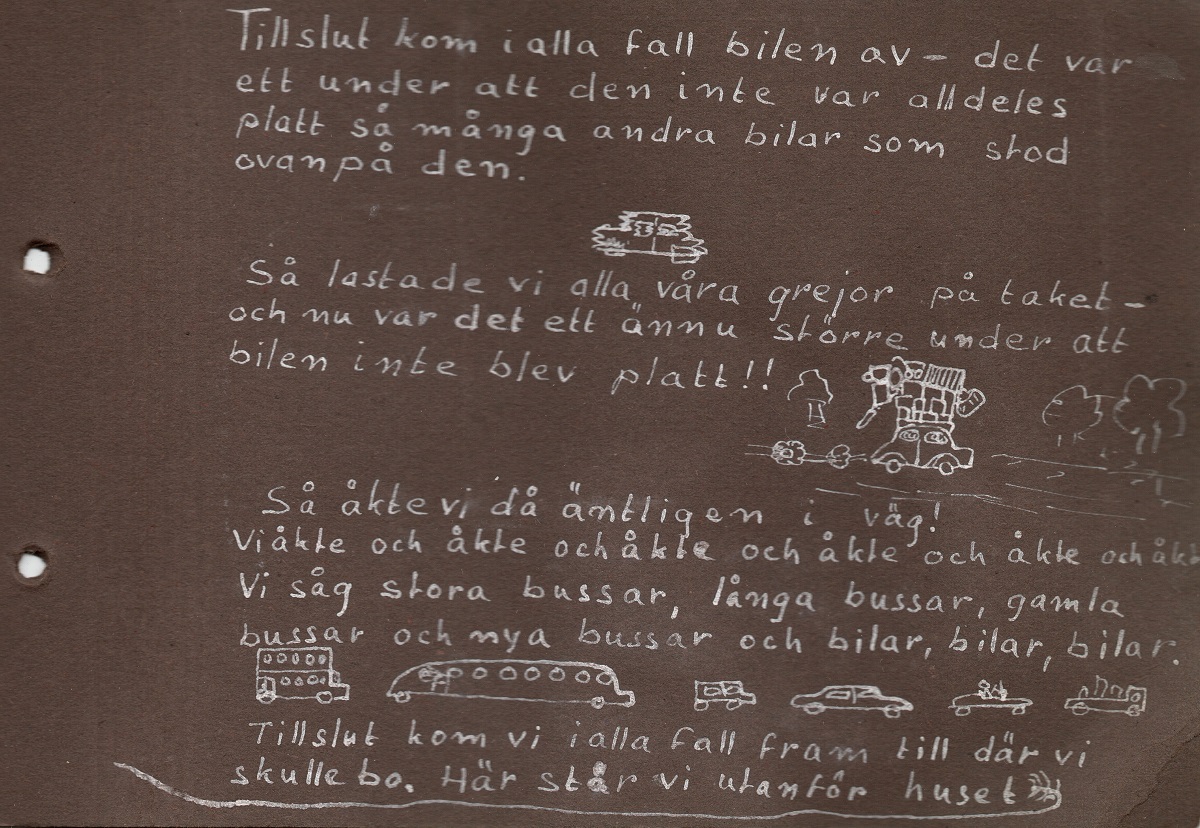 Tillslut kom i alla fall bilen av – det var
ett under att den inte var alldeles
platt så många andra bilar som stod
ovanpå den.
Så lastade vi alla våra grejor på taket –
och nu var det ett ännu större under att
bilen inte blev platt!!
Så åkte vi då äntligen i väg!
Vi åkte och åkte och åkte och åkte och åkte och åkt
Vi såg stora bussar, långa bussar, gamla
bussar och nya bussar och bilar, bilar, bilar.
Tillslut kom vi i alla fall fram till där vi
skulle bo. Här står vi utanför huset